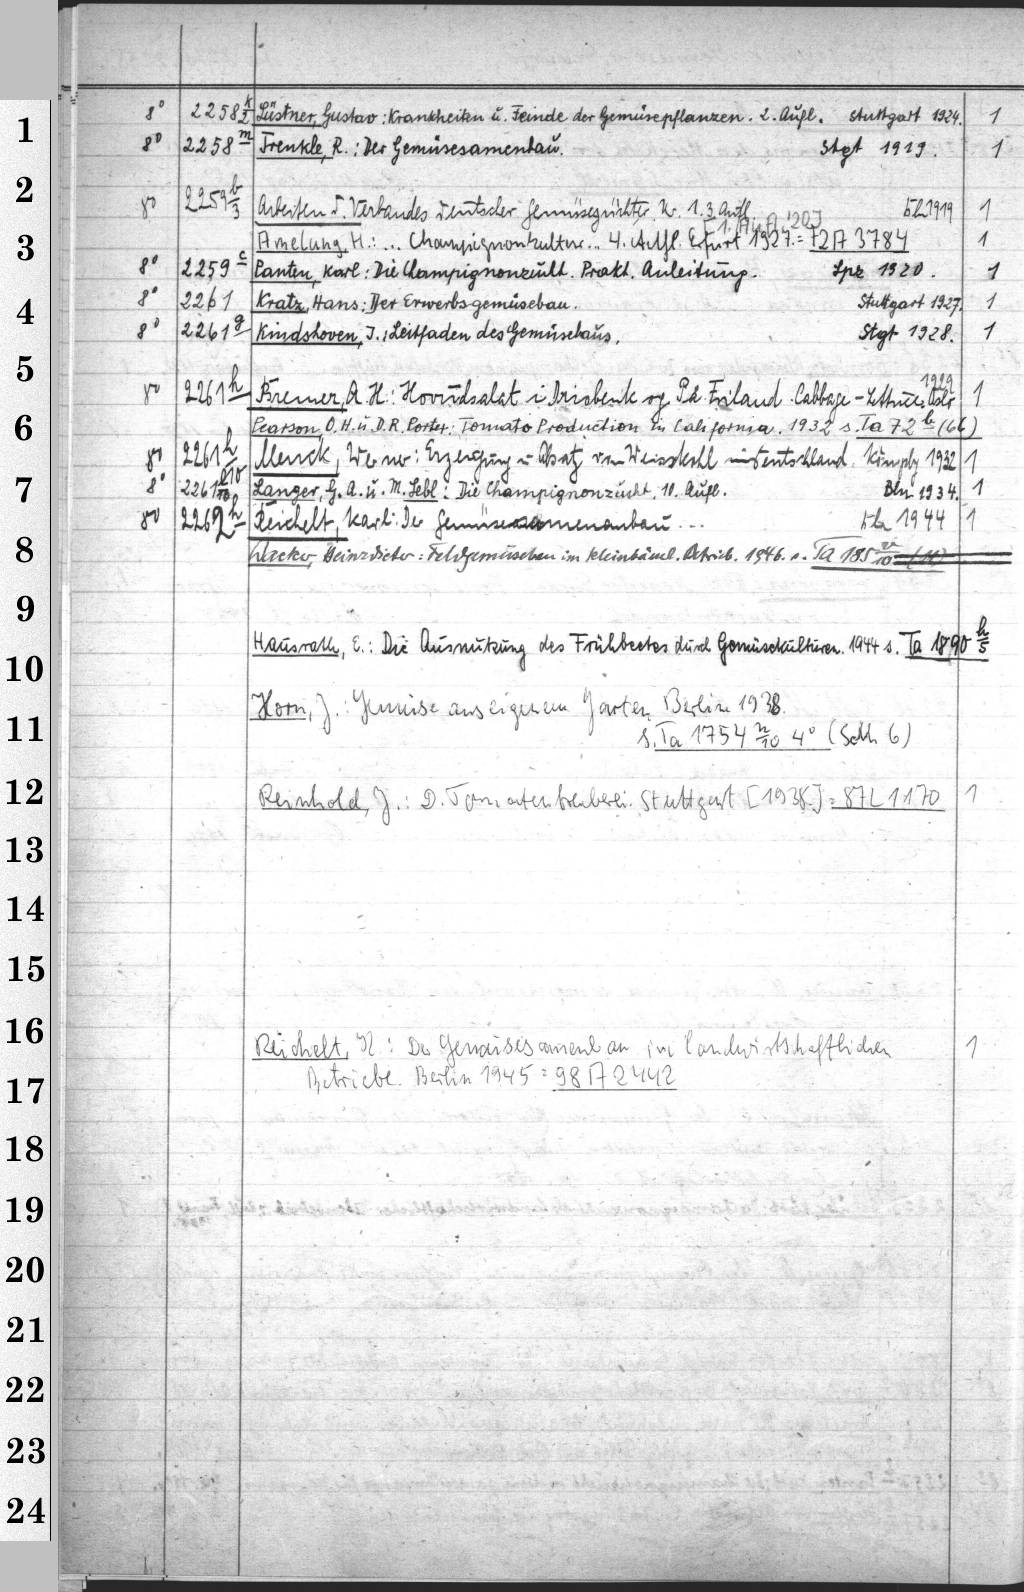 1
8° 2258 k/2 Lüstner, Gustav: Krankheiten u. Feinde der Gemüsepflanzen. 2. Aufl. Stuttgart 1924. 1
8° 2258 m Trenkle, R.: Der Gemüsesamenbau. Stgt 1919. 1
2
8° 2259 b/3 Arbeiten d. Verbandes deutscher Gemüsezüchter. Nr. 1. 3. Aufl. Bln 1919 1
3
Amelung, H.: ... Champignonkultur... 4. Aufl. Erfurt 1927. = 72A 3784 1
8° 2259 c Panten, Karl: Die Champignonzucht. Prakt. Anleitung. Lpz 1920. 1
4
8° 2261 Kratz, Hans: Der Erwerbsgemüsebau. Stuttgart 1927. 1
8° 2261 g Kindshoven, J.: Leitfaden des Gemüsebaus. Stgt 1928. 1
5
8° 2261 h Bremer, A. H.: Hovudsalat i Drivbenk og På Friland. Cabbage-Lettuce. Oslo 1929 1
6
Pearson, O. H. u. D. R. Porter: Tomato Production in California. 1932 s. Ta 72 b (66)
8° 2261 h/10 Menck, Werner: Erzeugung u. Absatz von Weisskohl in Deutschland. 1932 1
7
8° 2261 Langer, G. A. u. M. Lebl: Die Champignonzucht. 10. Aufl. Bln 1934. 1
8° 2262 h Reichelt, Karl: Der Gemüsesamenanbau ... Bln 1944 1
8
Heinz Dieter: Feldgemüsebau im kleinbäuerl. Betrieb. 1946. s. Ta 185 v/10 (11)
9
Hausrath, E.: Die Ausnutzung des Frühbeetes durch Gemüsekulturen. 1944 s. Ta 1890 h/5
10
Horn, J.: Gemüse aus eigenem Garten. Berlin 1938.
11
s. Ta 1754 n/10 4° (Sch 6)
12
Reinhold, J.: D. Tomatentreiberei. Stuttgart [1938.] = 87L 1170 1
13
14
15
16
Reichelt, K.: Der Gemüsesamenbau im landwirtschaftlichen 1
17
Betriebe. Berlin 1945 = 98A 2442
18
19
20
21
22
23
24